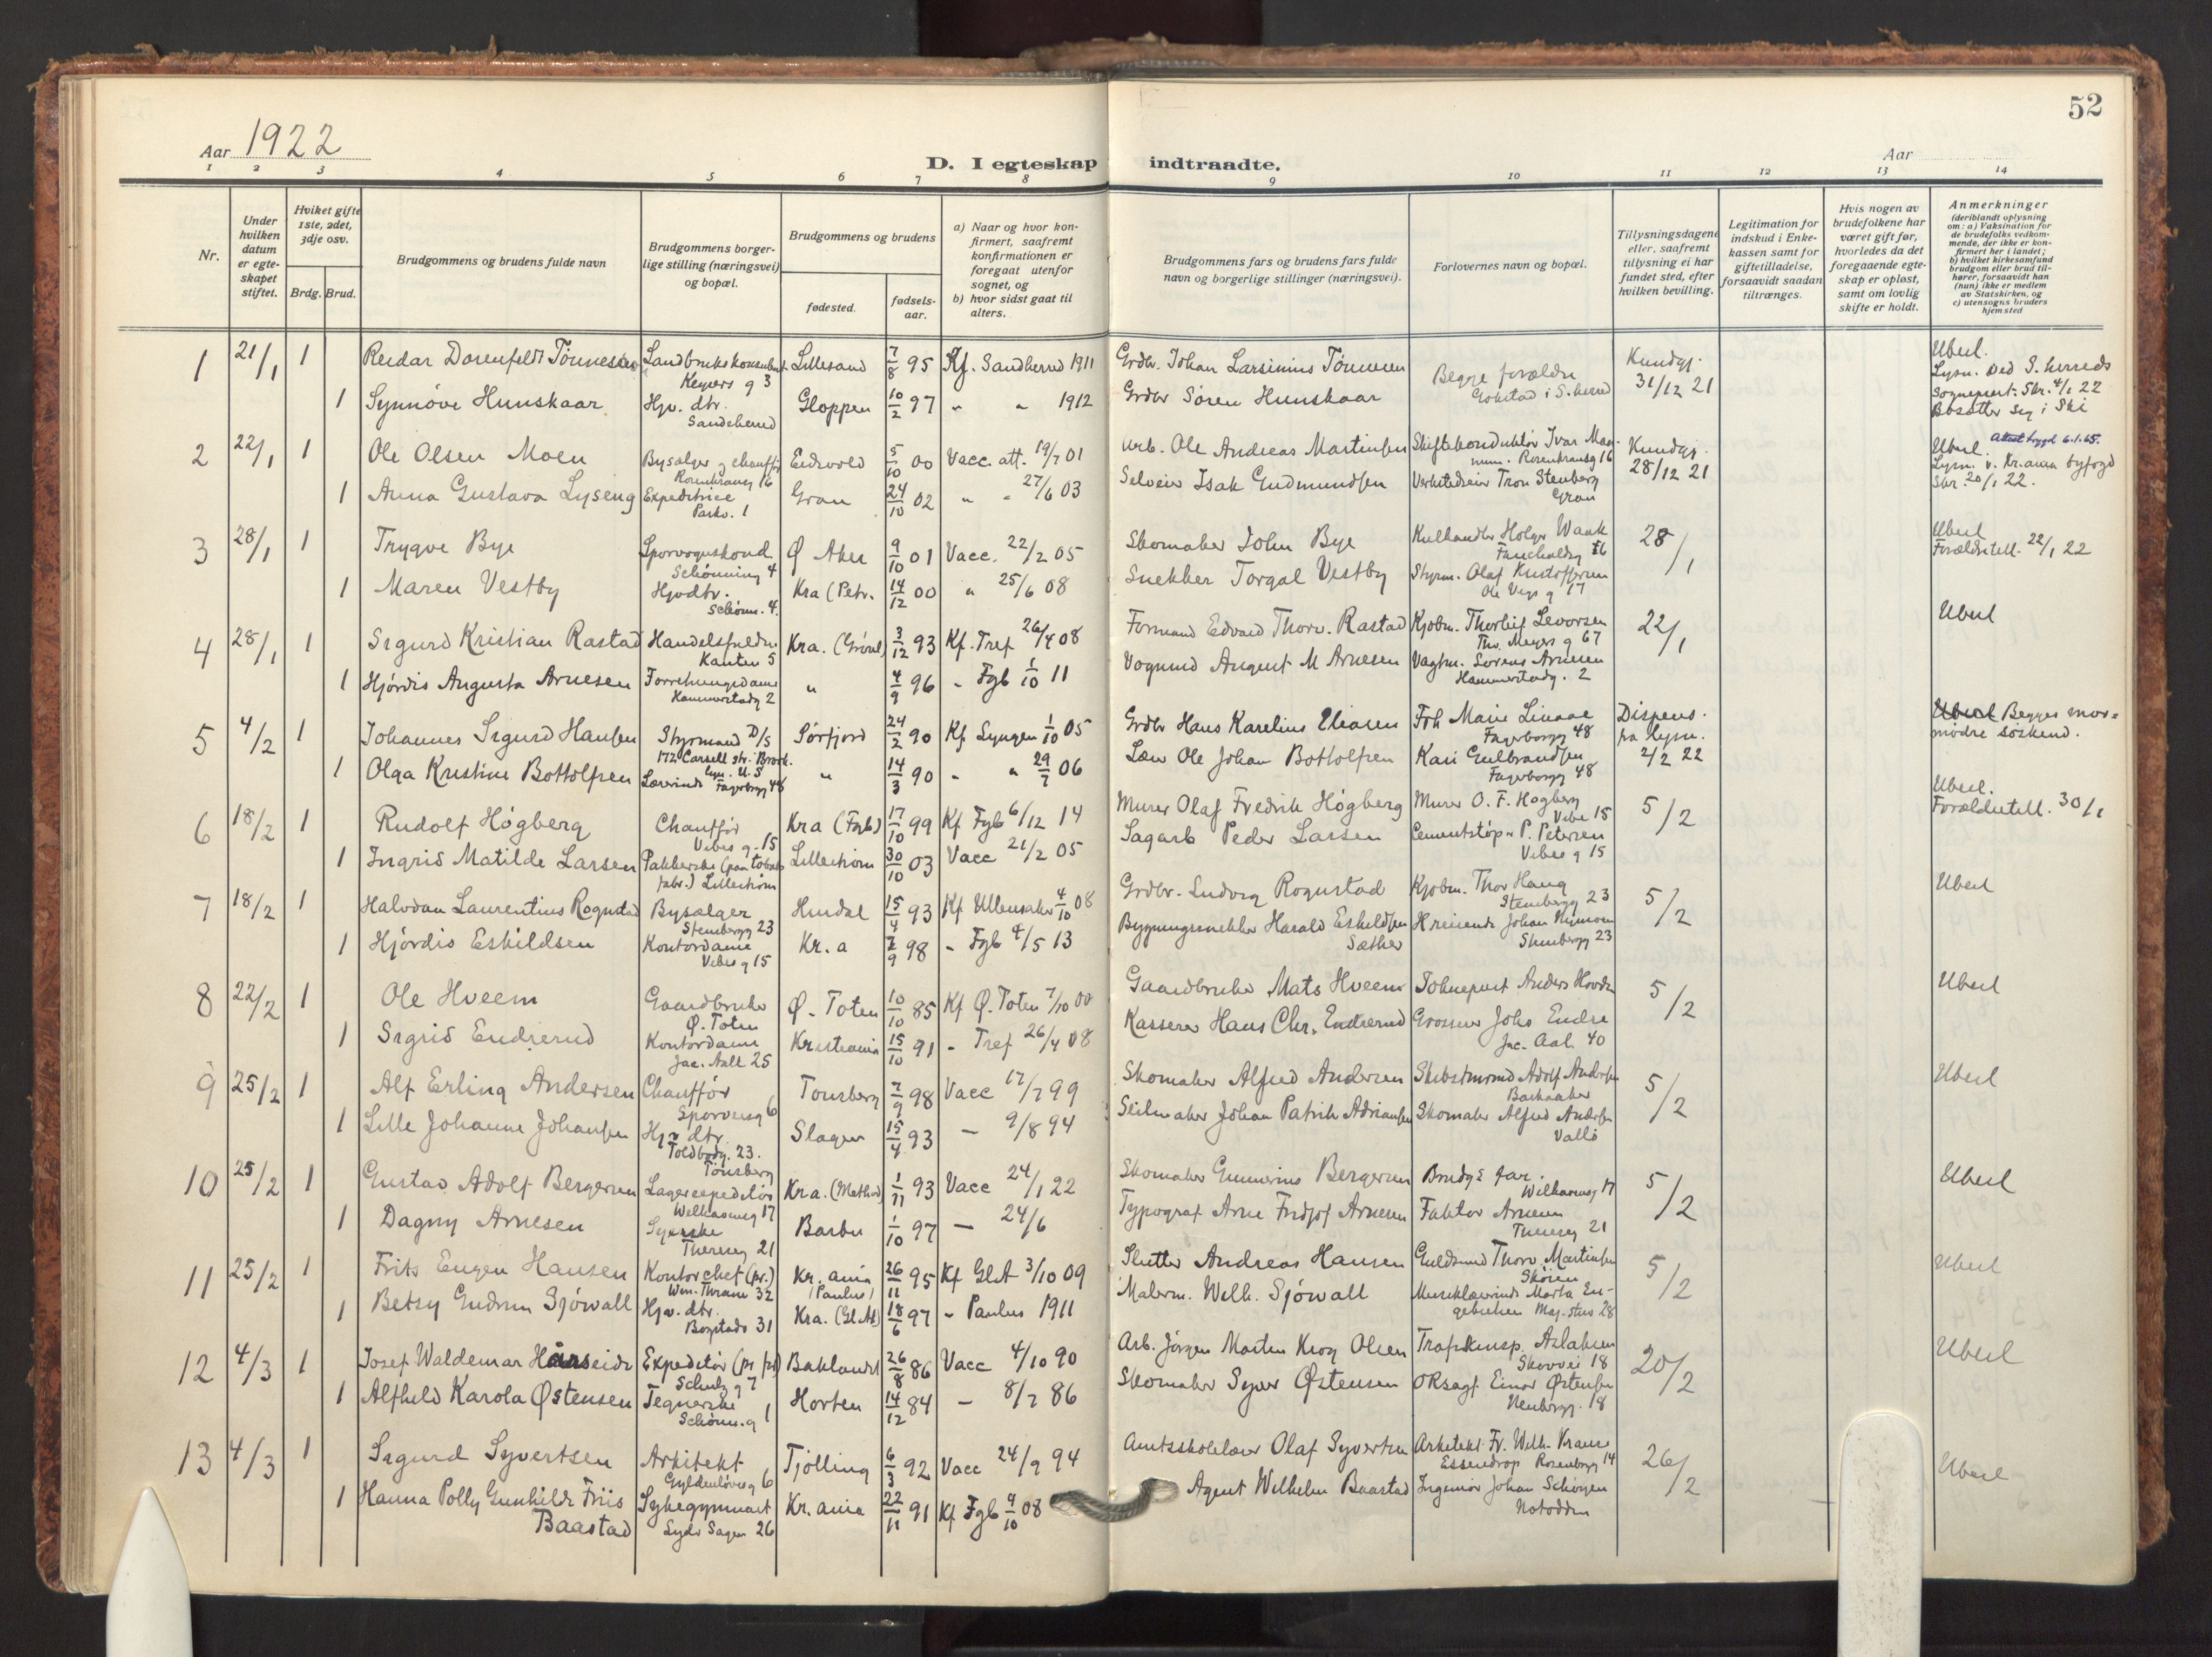 52
Aar 1922
D. I egteskap indtraadte.
Aar
1 2 3 4 5 6 7 8 9 10 11 12 13 14
Nr.
Under hvilken datum er egteskapet stiftet.
Hviket gifte 1ste, 2det, 3dje osv.
Brdg. Brud.
Brudgommens og brudens fulde navn
Brudgommens borgerlige stilling (næringsvei) og bopæl.
Brudgommens og brudens
fødested.
fødselsaar.
a) Naar og hvor konfirmert, saafremt konfirmationen er foregaat utenfor sognet, og
b) hvor sidst gaat til alters.
Brudgommens fars og brudens fars fulde navn og borgerlige stillinger (næringsvei).
Forlovernes navn og bopæl.
Tillysningsdagene eller, saafremt tillysning ei har fundet sted, efter hvilken bevilling.
Legitimation for indskud i Enkekassen samt for giftetilladelse, forsaavidt saadan tiltrænges.
Hvis nogen av brudefolkene har været gift før, hvorledes da det foregaaende egteskap er opløst, samt om lovlig skifte er holdt.
Anmerkninger
(deriblandt oplysning om: a) Vaksination for de brudefolks vedkommende, der ikke er konfirmert her i landet; b) hvilket kirkesamfund brudgom eller brud tilhører, forsaavidt han (hun) ikke er medlem av Statskirken, og c) utensogns bruders hjemsted
1 21/1 1 Reidar Dorenfeldt Tönnessen Landbrukskonsulent Lillesand 7/8 95 Kf. Sandherred 1911 Grdbr. Johan Larsinius Tönnesen Begge forældre Kundgj. Ubesl.
Keysers g 3 Gokstad i S.herred 31/12 21 Lysn. ved S. herreds
1 Synnöve Hunskaar Hjv. dtr. Gloppen 10/2 97 " " 1912 Grdbr Søren Hunskaar Sogneprest. Skr. 4/1 22
Sandeherred Bosætter seg i Ski
2 22/1 1 Ole Olsen Moen Bysælger og chauffør Eidsvold 5/10 00 Vacc. att. 19/7 01 Arb. Ole Andreas Martinsen Skiftekonduktör Ivar Kundgj. Ubesl. Attest bygd 6.1.65.
Rosenkransg 16 Rosenkransg 16 28/12 21 Lysn. v. Kr.ania byfogd
1 Anna Gustava Lyseng Expeditrice Gran 24/10 02 " " 27/6 03 Selveier Isak Gudmundsen Verkstedeier Tron Stenberg Skr. 20/1 22.
Parkv. 1 Gran
3 28/1 1 Trygve Bye Sporvognskond. Ø Aker 9/10 01 Vacc. 22/2 05 Skomaker John Bye Kulhandler Holger Waak 28/1 Ubesl
Schönning 4 Forældretill. 22/1 22
1 Maren Vestby Hjv dtr. Kra (Petr. 14/12 00 " 25/6 08 Snekker Torgal Vestby Styrm. Olaf Kristoffersen
Schönn. 4. Ole Vigs g 17
4 28/1 1 Sigurd Kristian Rastad Handelsfuldm. Kra. 3/12 93 Kf. Tref 26/4 08 Formand Edvard Thorv. Rastad Kjøbm. Thorleif Levorsen 22/1 Ubesl
Kanten 5 Thv. Meyers g 67
1 Hjördis Augusta Arnesen Forretningsdame " 4/9 96 - Fgb 1/10 11 Vognmd August M Arnesen Vagtm. Sorens Arnesen
Hammerstadg 2 Hammerstadg. 2
5 4/2 1 Johannes Sigurd Hansen Styrmand D/S Sörfjord 24/2 90 Kf Lyngen 1/10 05 Grdbr Hans Karelius Eliasen Frk Marie Linaae Dispens. Begges mormödre söskend.
172 Carsell str. Brook. Fagerborgg 48 fra lysn.
lyn. U.S
1 Olga Kristine Bottolfsen Lærerinde Fagerborgg 48 " 14/3 90 - " 29/7 06 Læer Ole Johan Bottolfsen Kari Gulbrandsen 2/2 22
Fagerborgg 48
6 18/2 1 Rudolf Högberg Chauffør Kra (Fgb) 17/10 99 Kf Fgb 6/12 14 Murer Olaf Fredrik Högberg Murer O. F. Högberg 5/2 Ubesl.
Vibes g. 15 Vibe 15 Forældretill. 30/1
1 Ingrid Matilde Larsen Pakkerske (paa tobaks Lillestrøm 30/10 03 Vacc 21/2 05 Sagarb Peder Larsen Cementstøp. P. Petersen
fabr.) Lillestrøm Vibes g 15
7 18/2 1 Halvdan Laurentius Rognstad Bysælger Hurdal 15/4 93 Kf Ullensaker 4/10 08 Grdbr. Ludvig Rognstad Kjøbm. Thor Haug 5/2 Ubesl
Stensbergg 23 Stensbergg 23
1 Hjördis Eskildsen Kontordame Kr.a 7/9 98 - Fgb 4/5 13 Bygningssnekker Harald Eskildsen Johan Nymoen
Vibes g 15 Sæther Stensbergg 23
8 22/2 1 Ole Hveem Gaardbruker Ø. Toten 10/10 85 Kf Ø. Toten 7/10 00 Gaardbruker Mats Hveem Anders Hovde 5/2 Ubesl
Ø. Toten
1 Sigrid Endrerud Kontordame Kristiania 15/10 91 - Tref 26/4 08 Kasserer Hans Chr. Endrerud Grosserer Johs Endre
Jac. Aall 25 Jac. Aal. 40
9 25/2 1 Alf Erling Andersen Chauffør Tönsberg 7/9 98 Vacc 17/7 99 Skomaker Alfred Andersen Skibstmrmd Adolf Andersen 5/2 Ubesl
Sporveisg 6 Barkaaker
1 Lille Johanne Johansen Hjv dtr. Slagen 15/4 93 - 9/8 94 Seilmaker Johan Patrik Adriansen Skomaker Alfred Andersen
Toldbodg. 23. Vallö
Tönsberg
10 25/2 1 Gustav Adolf Bergersen Lagerexpeditör Kra. 1/11 93 Vacc 24/1 22 Skomaker Gunnerius Bergersen Brudgs far. 5/2 Ubesl
Welhavensg 17 Welhavensg 17
1 Dagny Arnesen Syerske Barbu 1/10 97 - 24/6 Typograf Arne Fridjof Arnesen Faktor Arnesen
Theresesg 21 Theresesg 21
11 25/2 1 Frits Eugen Hansen Kontorchef (pr.) Kr.ania 26/11 95 Kf Glt 3/10 09 Slutter Andreas Hansen Guldsmed Thorv. Martinsen 5/2 Ubesl
Wm. Thrane 32 (Paulus) Skøien
1 Betsy Gudrun Sjöwall Hjv. dtr. Kra. (Gl. Ak) 18/6 97 - Paulus 1911 Malerm. Wilh. Sjöwall Musiklærerinde Marta En-
Bogstadv 31 gebretsen Maj. stuv 28
12 4/3 1 Josef Waldemar Hånseide Expeditör Baklandet 26/8 86 Vacc 4/10 90 Arb. Jörgen Martin Krog Olsen Trafikinsp. Aslaksen 20/2 Ubesl
Schultz g 7 Skovvei 18
1 Alfhild Karola Østensen Tegnerske Horten 14/12 84 - 8/7 86 Skomaker Syver Østensen ORsagf. Einar Østensen
Schönn. g 1 Neubergg. 18
13 4/3 1 Sigurd Syvertsen Arkitekt Tjölling 6/3 92 Vacc 24/9 94 Amtsskolelærer Olaf Syvertsen Arkitekt Fr. Wilh. Krause 26/2 Ubesl
Gyldenløvesg 6 Essendrop Rosenborgg 14
1 Hanna Polly Gunhilde Friis Sykegymnast Kr.ania 22/11 91 Kf Fgb 4/10 08 Agent Wilhelm Baastad Ingeniör Johan Schiörgen
Baastad Lyder Sagen 26 Notodden